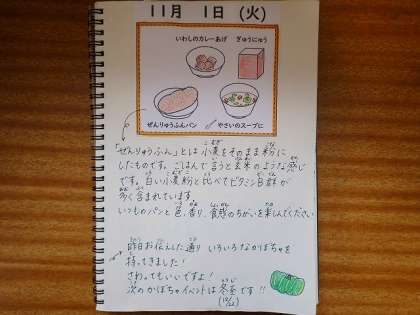 11月 1日 (火)
いわしのカレーあげ ぎゅうにゅう
ぜんりゅうふんパン やさいのスープに
「ぜんりゅうふん」とは 小麦をそのまま粉に
したものです。ごはんで言うと玄米のような感じ
です。白い小麦粉と比べてビタミンB群が
多く含まれています。
いつものパンと色、香り、食感のちがいを楽しんでください
昨日お伝えした通り いろいろなかぼちゃを
持ってきました!
さわってもいいですよ!
次のかぼちゃイベントは冬至です!!
(12/22)